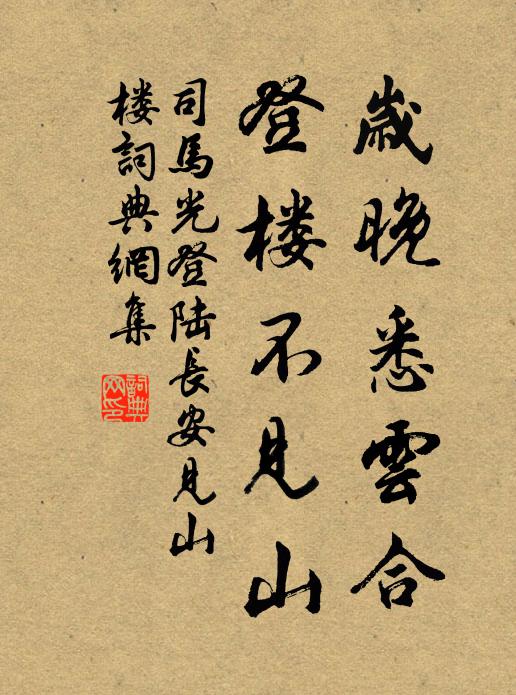 歲晚悉雲合
登楼不見山
司馬光登陆長安見山
楼詞典網集
詞典網印